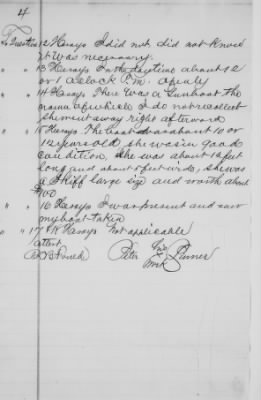 4
To Question 12 He says I did not did not know
it was necessary.
" " 13 He says In the day time about 12
or 1 oclock P.M.
" " 14 He says There was a Gunboat the
name of which I do not recollect
she went away right afterward
" " 15 He says The boat was about 10 or
12 years old she was in good
condition. She was about 18 feet
long and about 5 feet wide, she was
a Skiff large size and worth about
$60
" " 16 He says I was present and saw
my boat taken
" " 17 He says Not applicable
attest
Peter his mark